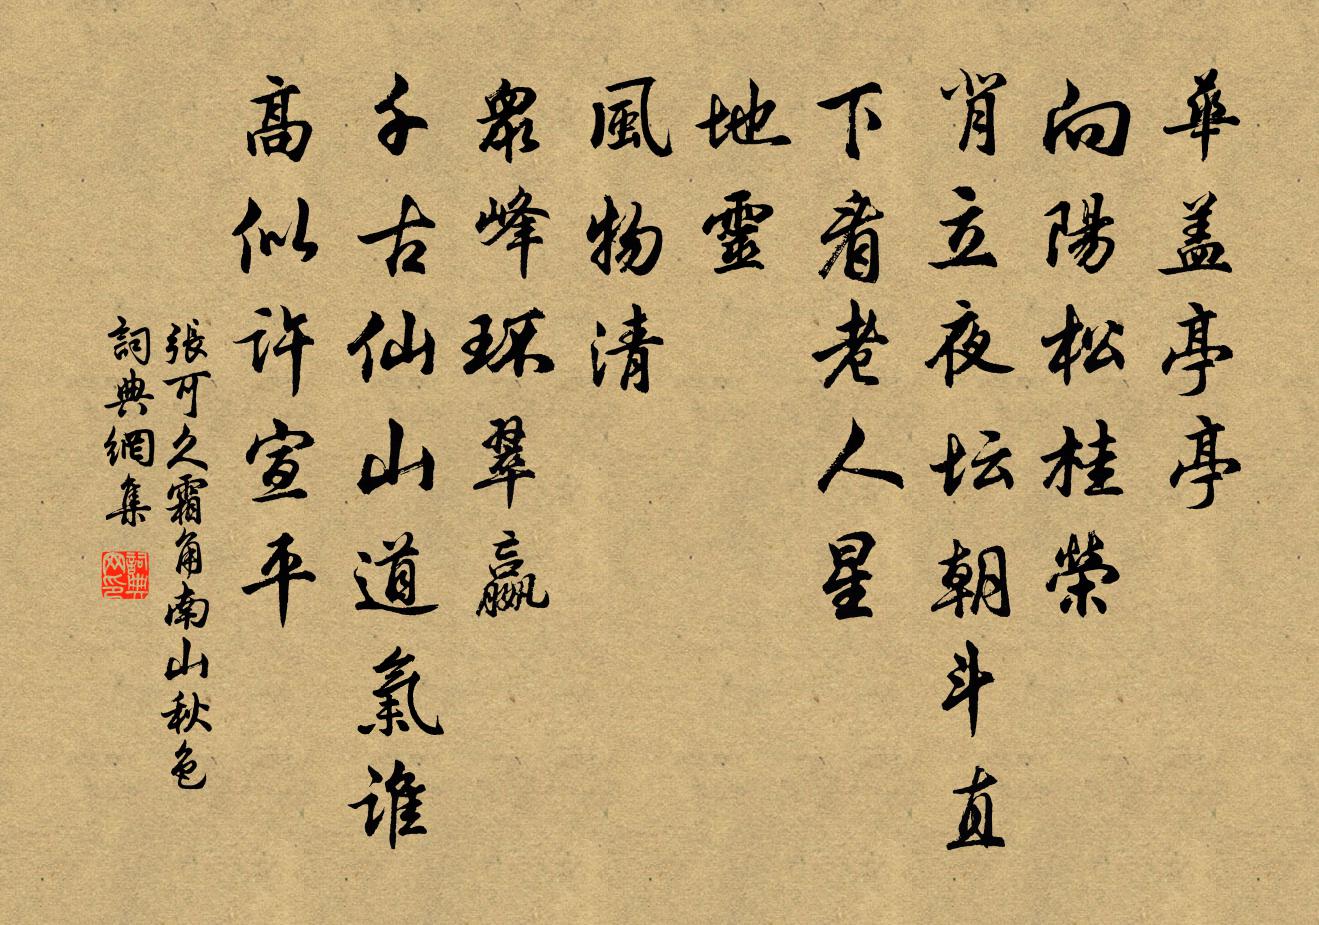 華盖亭亭
向陽松桂榮
肖立夜坛朝斗直
下看老人星
地靈
風物清
衆峰环翠嬴
千古仙山道氣誰
高似許宣平
張可久霜角南山秋色
詞典網集
詞典网印